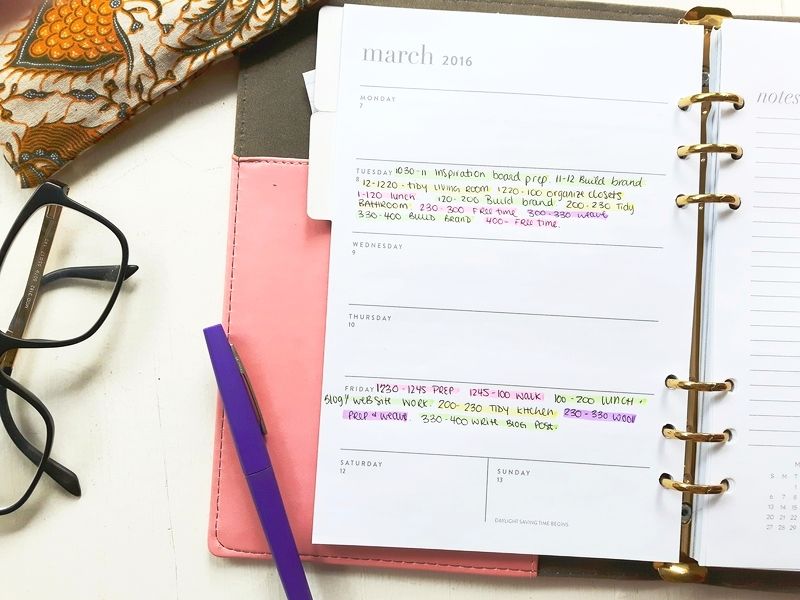 march 2016
MONDAY
7
TUESDAY 1030-11 Inspiration board prep. 11-12 Build brand
8 12-1220 - tidy living room 1220-100 organize closets
1-120 lunch 120-200 Build brand 200-230 Tidy
BATHROOM 230-300 Free time 300-330 weave
330-400 Build Brand 400- Free time.
WEDNESDAY
9
THURSDAY
10
FRIDAY 1230-1245 PREP 1245-100 walk 100-200 LUNCH
Blog/ website work 200-230 TIDY KITCHEN 230-330 wool
prep & weave 330-400 write Blog post.
SATURDAY
12
SUNDAY
13
DAYLIGHT SAVING TIME BEGINS
notes
M
S M T
6 7 8
13 14 15
20 21 22
27 28 29